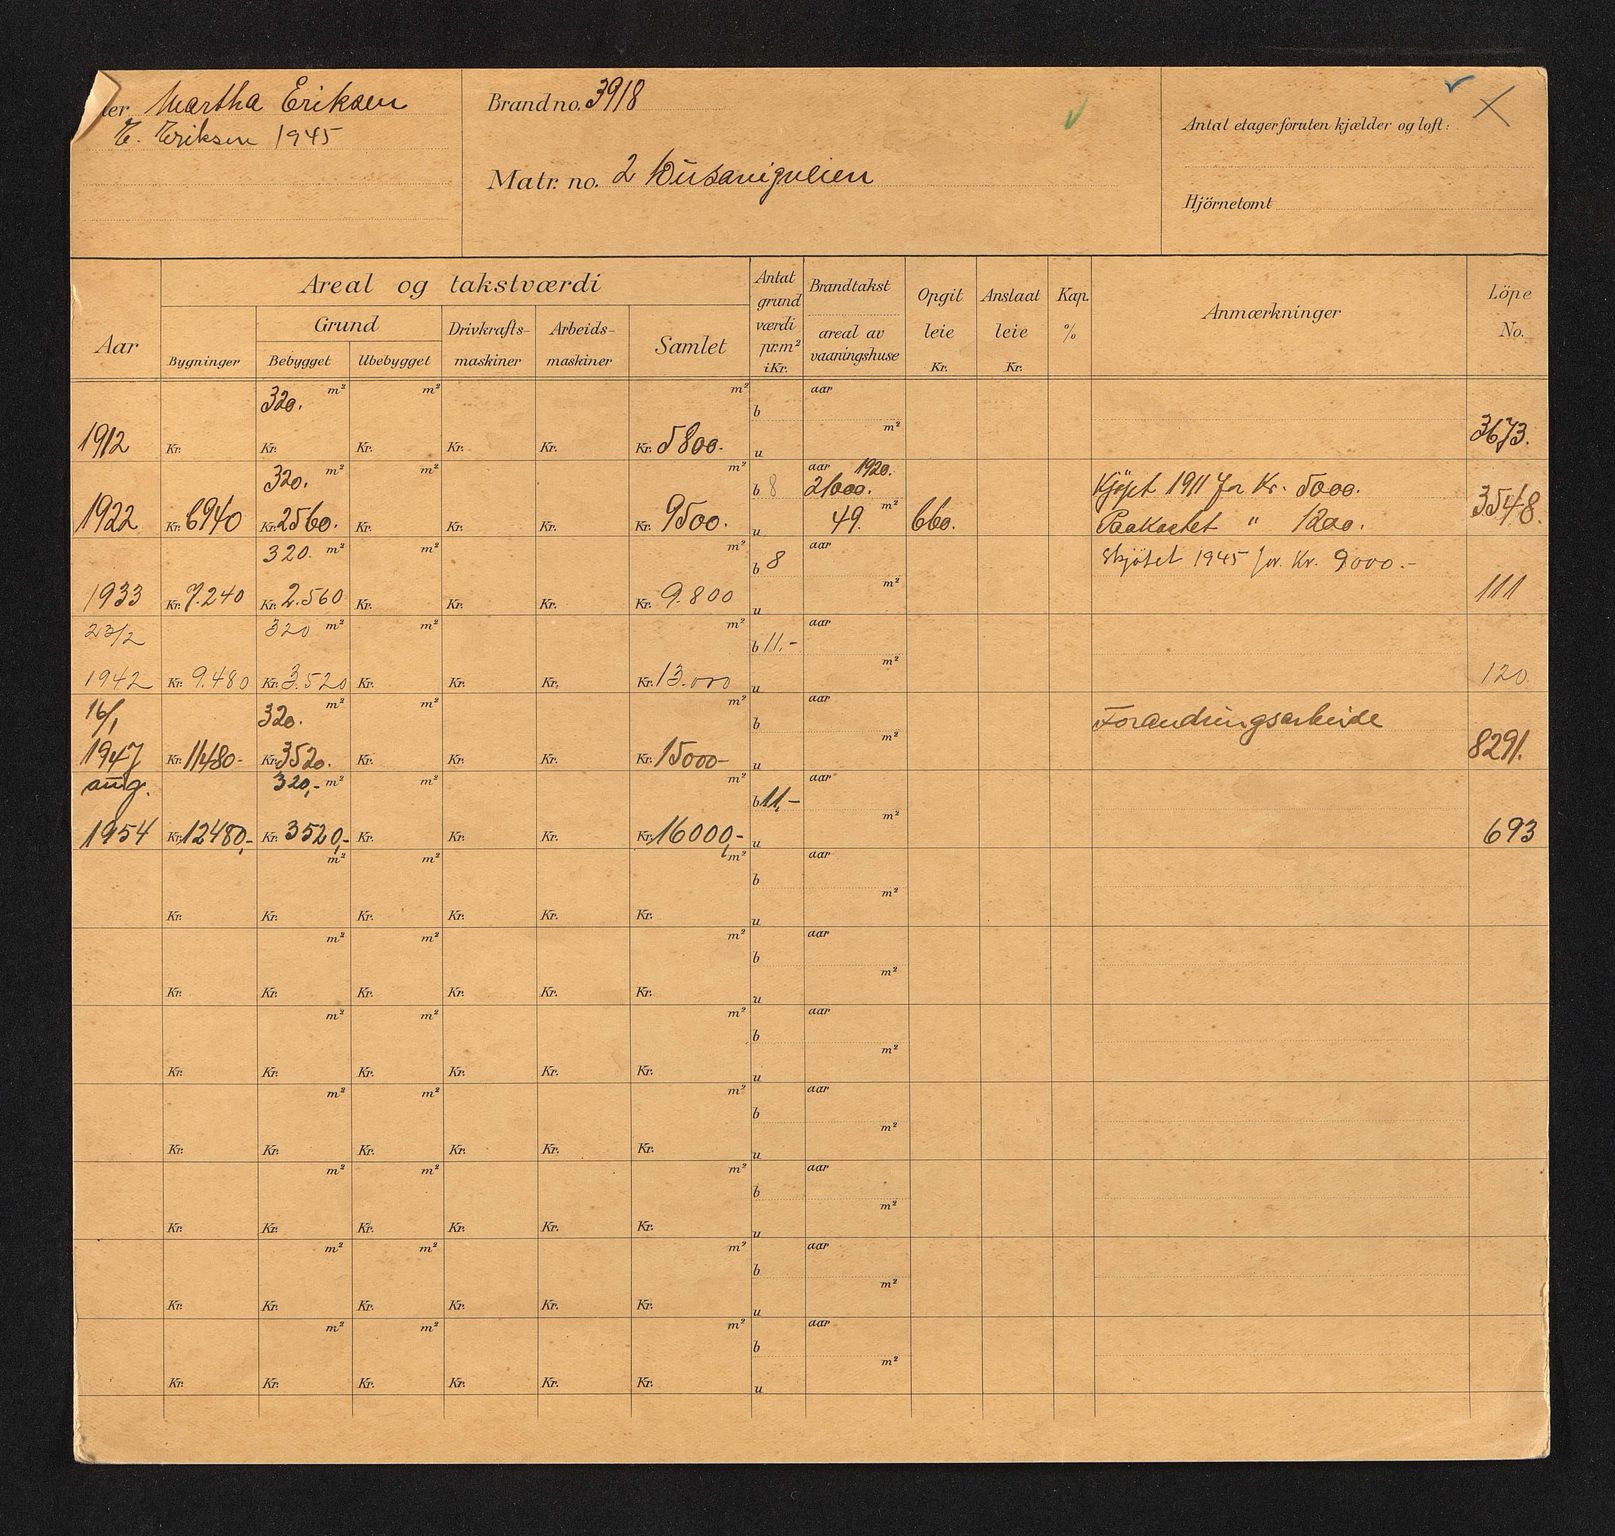 ier Martha Eriksen
E. Eriksen 1945
Brand no. 3918
Matr. no. 2 Busavigveien
Antal etager foruten kjælder og loft:
Hjörnetomt
Aar
Areal og takstværdi
Bygninger
Grund
Bebygget
Ubebygget
Drivkrafts-
maskiner
Arbeids-
maskiner
Samlet
Antat
grund
værdi
pr.m²
i Kr.
Brandtakst
areal av
vaaningshuse
Opgit
leie
Kr.
Anslaat
leie
Kr.
Kap.
%
Anmærkninger
Löpe
No.
320. m² m² m² b aar
m²
1912 Kr. Kr. Kr. Kr. Kr. Kr. 5800. u 3673.
320. m² m² m² b 8 aar 1920.
21000.
Kjøpt 1911 for Kr. 5000.
1922 Kr. 6940 Kr. 2560. Kr. Kr. Kr. Kr. 9500. u 49. m² 660. Paakostet " 1200. 3548.
320. m² m² m² b 8 aar Skjøtet 1945 for Kr. 9000.-
m²
1933 Kr. 7.240 Kr. 2.560 Kr. Kr. Kr. Kr. 9.800 u 111
23/2 320 m² m² m² b 11.- aar
m²
1942 Kr. 9.480 Kr. 3.520 Kr. Kr. Kr. Kr. 13.000 u 120
16/1 320. m² m² m² b aar Forandringsarbeide
m²
1947 Kr. 11480- Kr. 3520. Kr. Kr. Kr. Kr. 15000- u 8291.
aug. 320,- m² m² m² b 11,- aar
m²
1954 Kr. 12480,- Kr. 3520,- Kr. Kr. Kr. Kr. 16000,- u 693
m² m² m² b aar
m²
Kr. Kr. Kr. Kr. Kr. Kr. u
m² m² m² b aar
m²
Kr. Kr. Kr. Kr. Kr. Kr. u
m² m² m² b aar
m²
Kr. Kr. Kr. Kr. Kr. Kr. u
m² m² m² b aar
m²
Kr. Kr. Kr. Kr. Kr. Kr. u
m² m² m² b aar
m²
Kr. Kr. Kr. Kr. Kr. Kr. u
m² m² m² b aar
m²
Kr. Kr. Kr. Kr. Kr. Kr. u
m² m² m² b aar
m²
Kr. Kr. Kr. Kr. Kr. Kr. u